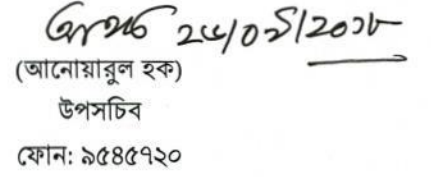 ২৫/০৯/২০১৮
(আনোয়ারুল হক)
উপসচিব
ফোন: ৯৫৪৫৭২০